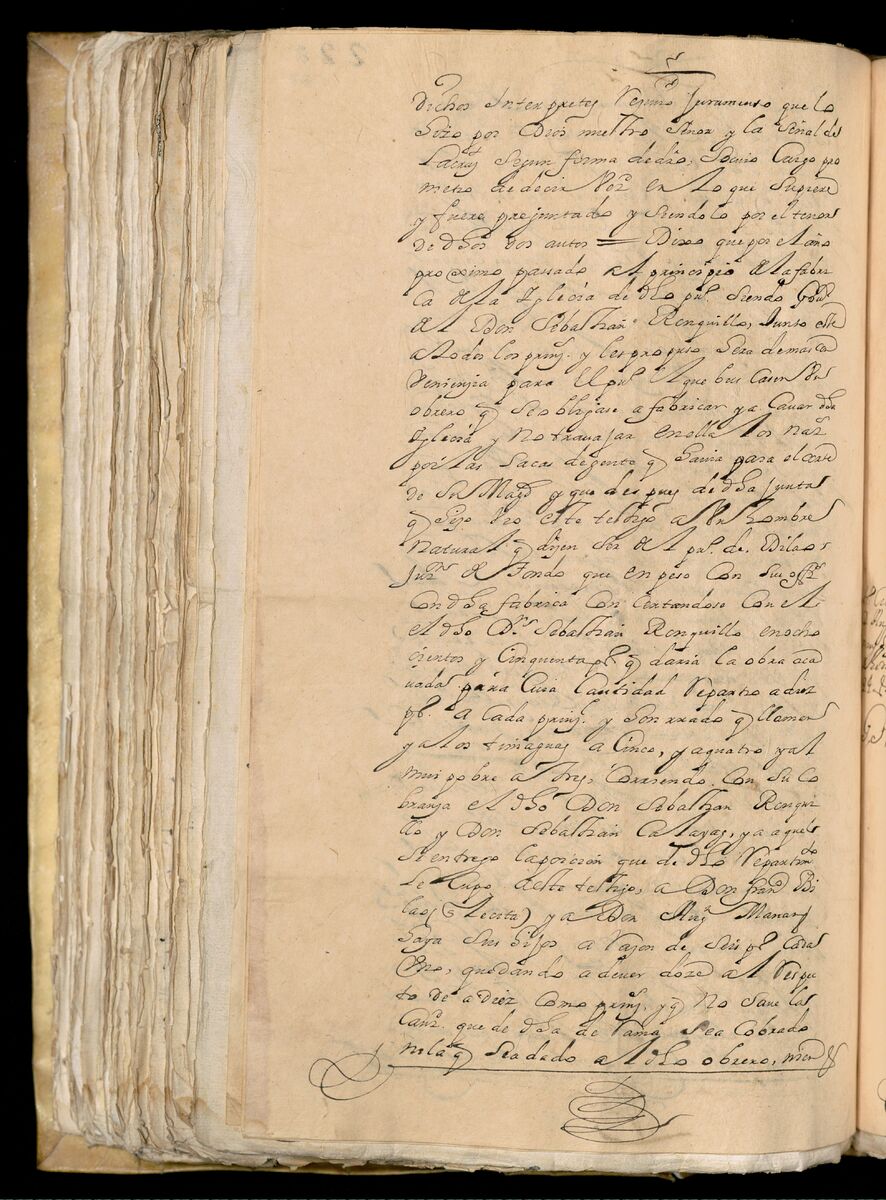 dichos Interpretes Reciui Juramento que lo
hizo por Dios nuestro Señor y la señal de
la cruz segun forma de dro, so cuio cargo pro
metio de decir Verd en lo que supiere
y fuere preguntado y siendolo por el tenor
de dhos dos autos = Dixo que por el año
proximo passado al principio de la fabri
ca de la Iglecia de dho pu.º siendo Gou.or
de el Don Sebasthian Ronquillo, Junto este
a todos los prinz.s y les propuso sera de mas co
veniensia para el pu.º el que buscasen un
obrero q se obligase a fabricar y acauar dha
Iglecia y no trauajar en ella los nat.s
por las sacas de gente q hauia para el
de Su Mag.d y que despues de dha Junta
q hizo vio este testigo a un hombre
natural q disen ser de el pu.º de Dilao,
Ju.º de Tondo que enpeso con sus off.s
con dha fabrica consertandose con el
el dho D.n Sebasthian Ronquillo en ocho
cientos y cinquenta p.s q daria la obra aca
uada para cuia cantidad Repartio a diez
p.s a cada prinz. y honrrado q llaman
y a los timaguas a cinco, y a quatro y al
mui pobre a tres, corriendo con su co
branza el dho Don Sebasthian Ronqui
llo y Don Sebasthian Calayag, y a aquel
se entrego la porcion que de dho Repartim.to
le cupo a este testigo, a Don Fran.co Bi
lao (o Lecita) y a Don Mig.l Manan
gaya sus hijos a rason de seis p.s cada
Vno, quedando a deuer doze al Respe
to de a Diez como prinz.s y q no saue las
Cant.s que de dha derrama sea cobrado
ni la q sea dado a el dho obrero, ni en